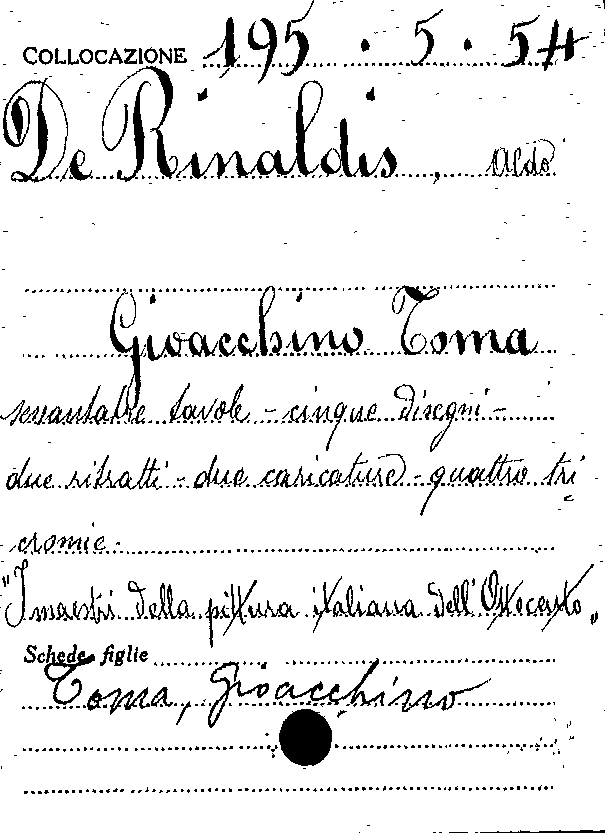 COLLOCAZIONE 195 . 5 . 54
De Rinaldis, Aldo
Gioacchino Toma
sessantatre tavole - cinque disegni -
due ritratti - due caricature - quattro tri
cromie.
"I maestri della pittura italiana dell'Ottocento"
Schede figlie
Toma, Gioacchino